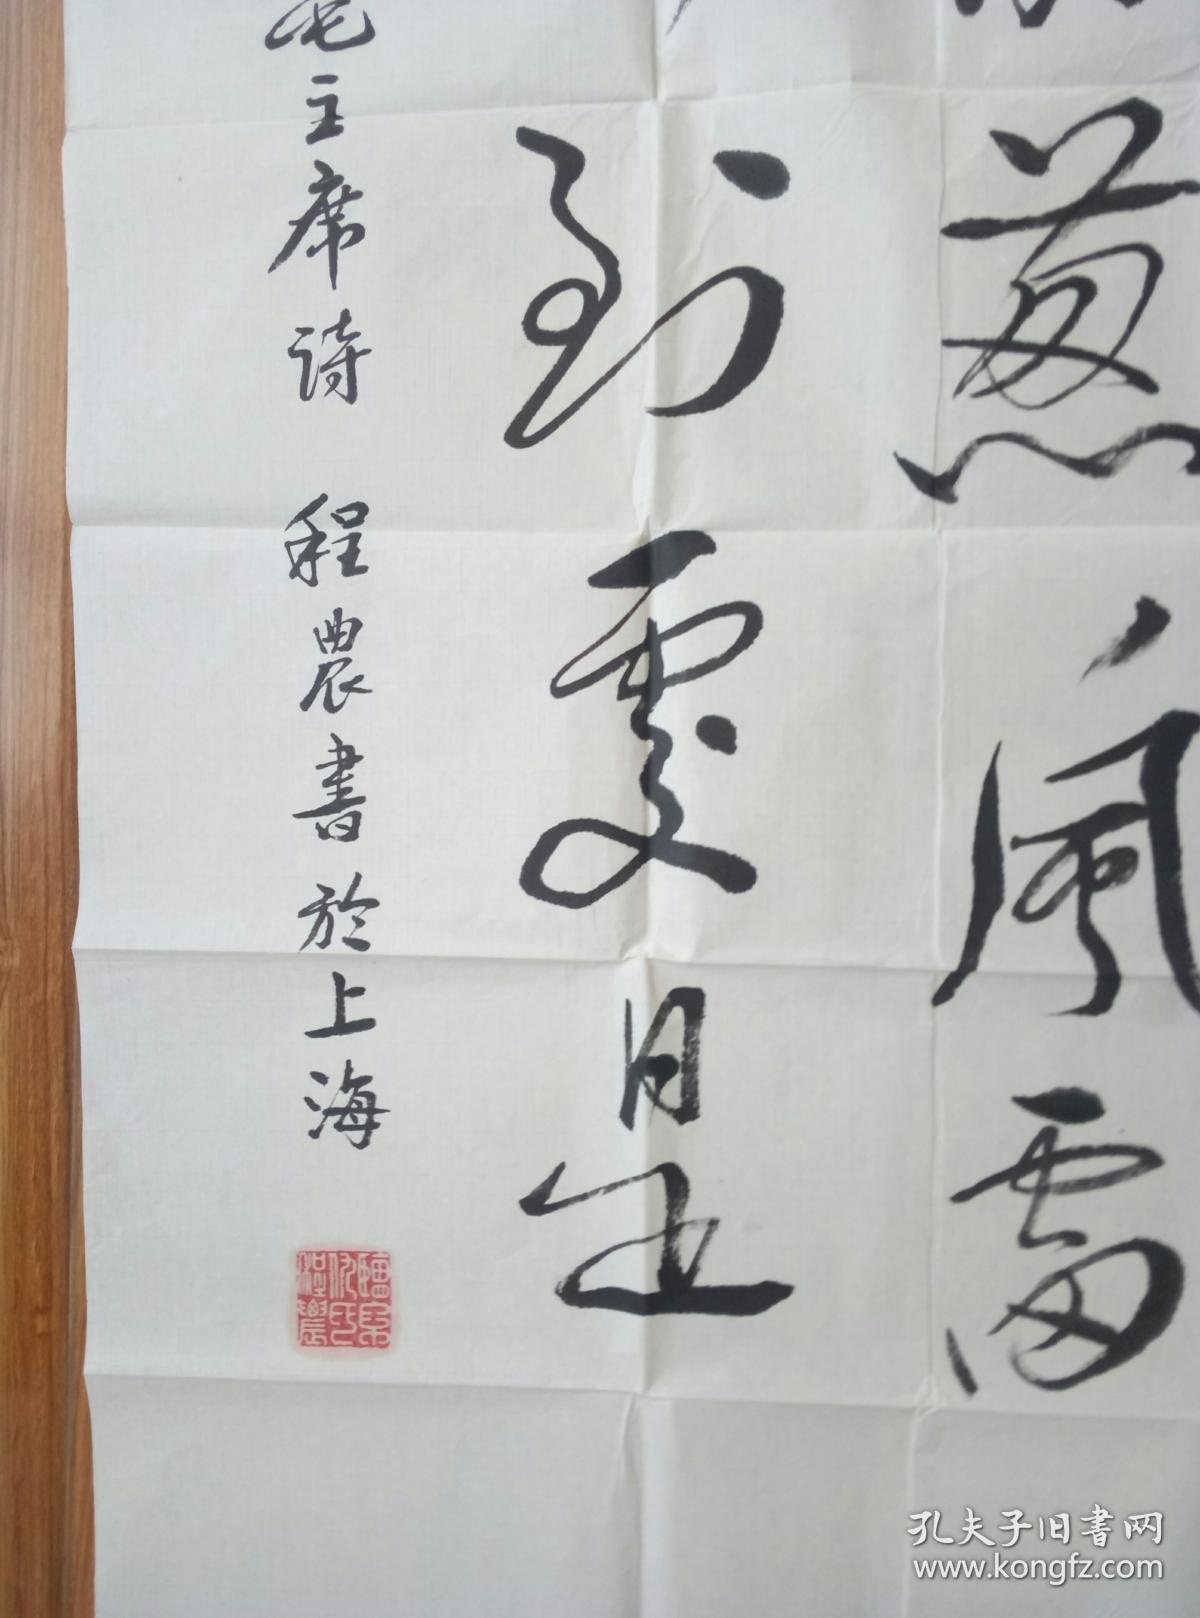 風雷
到處是
毛主席詩 程農書於上海
孔夫子旧书网
www.kongfz.com